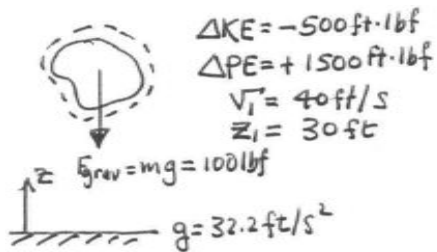 ΔKE = -500 ft·lbf
ΔPE = +1500 ft·lbf
V₁ = 40 ft/s
z₁ = 30 ft
z
Fgrav = mg = 100 lbf
g = 32.2 ft/s²